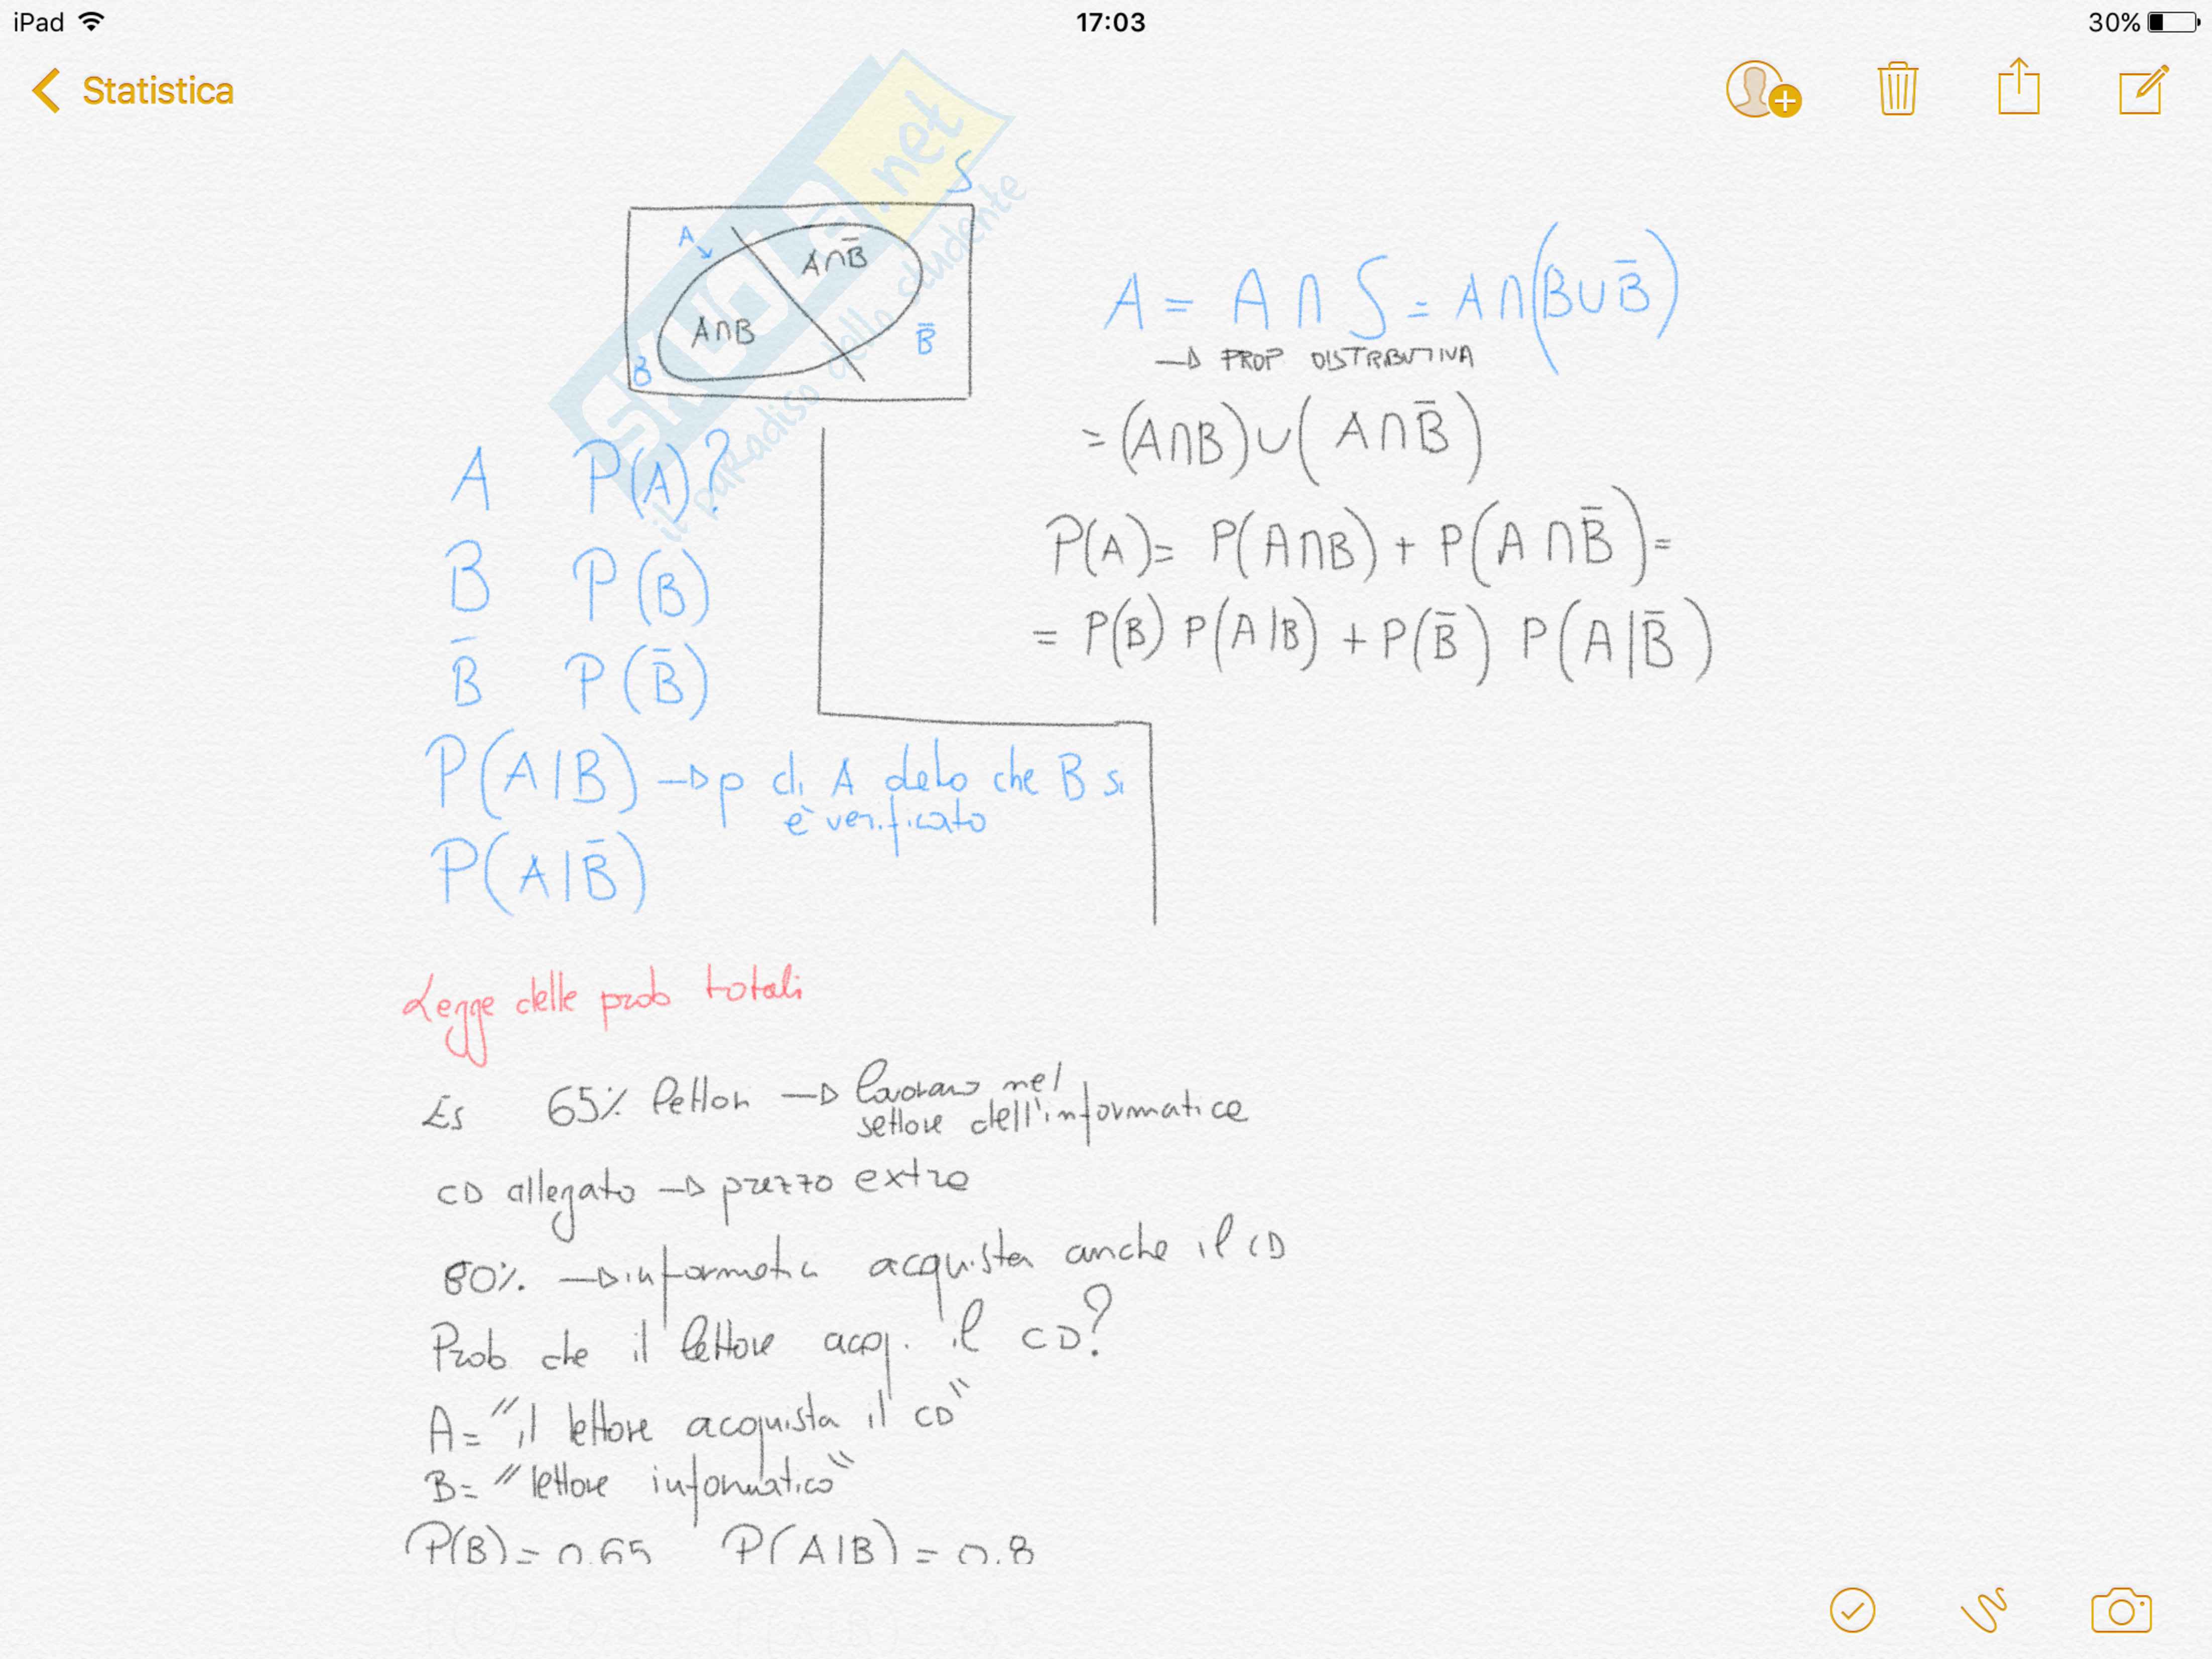 iPad
17:03
30%
Statistica
SKUOLA.net
il paRadiso dello studente
S
A
A∩B̄
A∩B
B
B̄
A = A ∩ S = A∩(B∪B̄)
→ PROP DISTRIBUTIVA
= (A∩B)∪(A∩B̄)
P(A)= P(A∩B) + P(A∩B̄)=
= P(B) P(A|B) + P(B̄) P(A|B̄)
A P(A)?
B P(B)
B̄ P(B̄)
P(A|B) → p di A dato che B si
è verificato
P(A|B̄)
Legge delle prob totali
Es 65% lettori → lavorano nel
settore dell'informatica
CD allegato → prezzo extra
80% → informatici acquista anche il CD
Prob che il lettore acq. il CD?
A= "il lettore acquista il CD"
B= "lettore informatico"
P(B)= 0.65 P(A|B) = 0.8